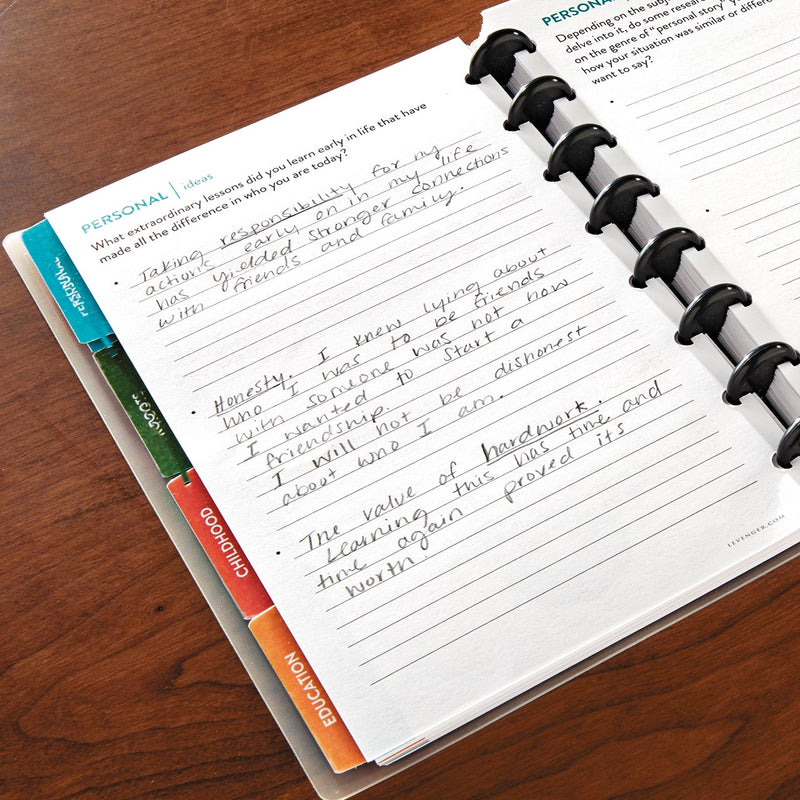 PERSONAL | ideas
What extraordinary lessons did you learn early in life that have
made all the difference in who you are today?
• Taking responsibility for my
actions early on in my life
has yielded stronger connections
with friends and family.
• Honesty. I knew lying about
who I was to be friends
with someone was not how
I wanted to start a
friendship.
I will not be dishonest
about who I am.
• The value of hardwork.
Learning this has time and
time again proved its
worth
LEVENGER.COM
PERSONAL
Depending on the subj
delve into it, do some resear
on the genre of "personal story"
how your situation was similar or differe
want to say?
PERSONAL
ROOTS
CHILDHOOD
EDUCATION